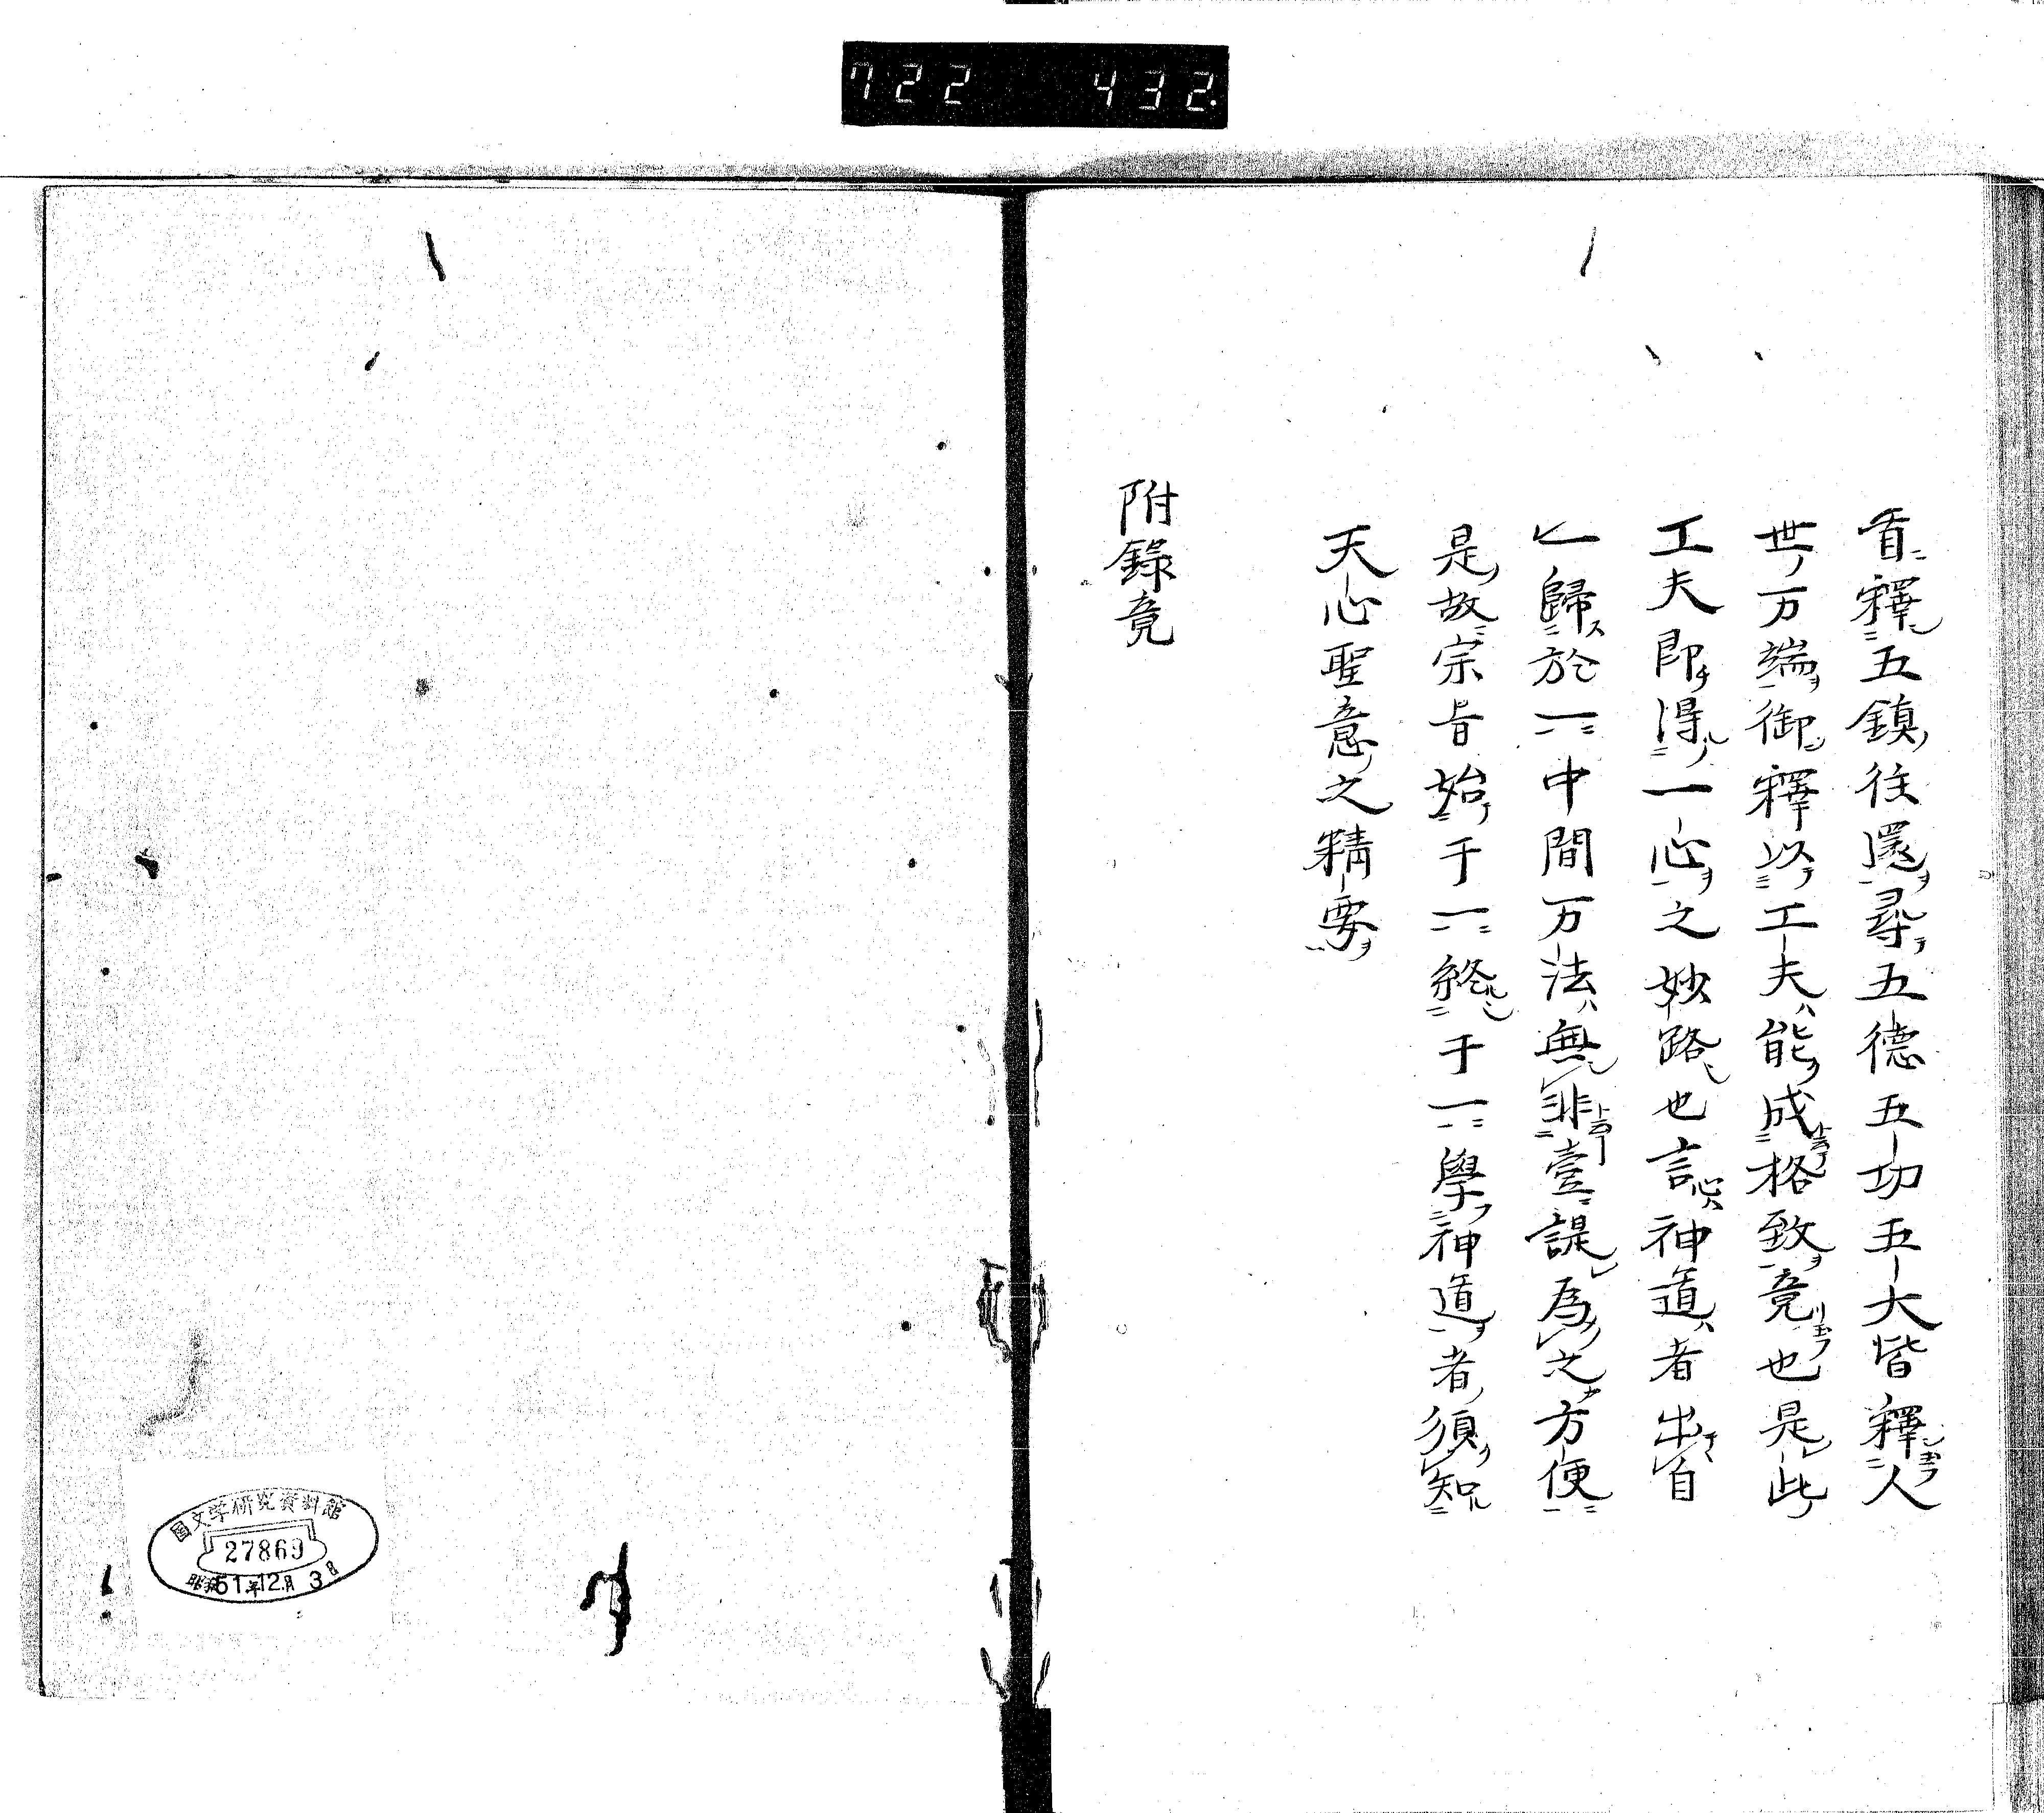 722 432
首釋五鎮徃還尋五德五功五大皆釋人
世万端御釋以工夫能成格致竟也是此
工夫即得一心之妙路也言神道者出自
一歸於一中間万法無非壹諟為之方便
是故宗旨始于一終于一學神道者須知
天心聖意之精要
附錄竟
國文学研究資料館
27869
昭和51年12月3日